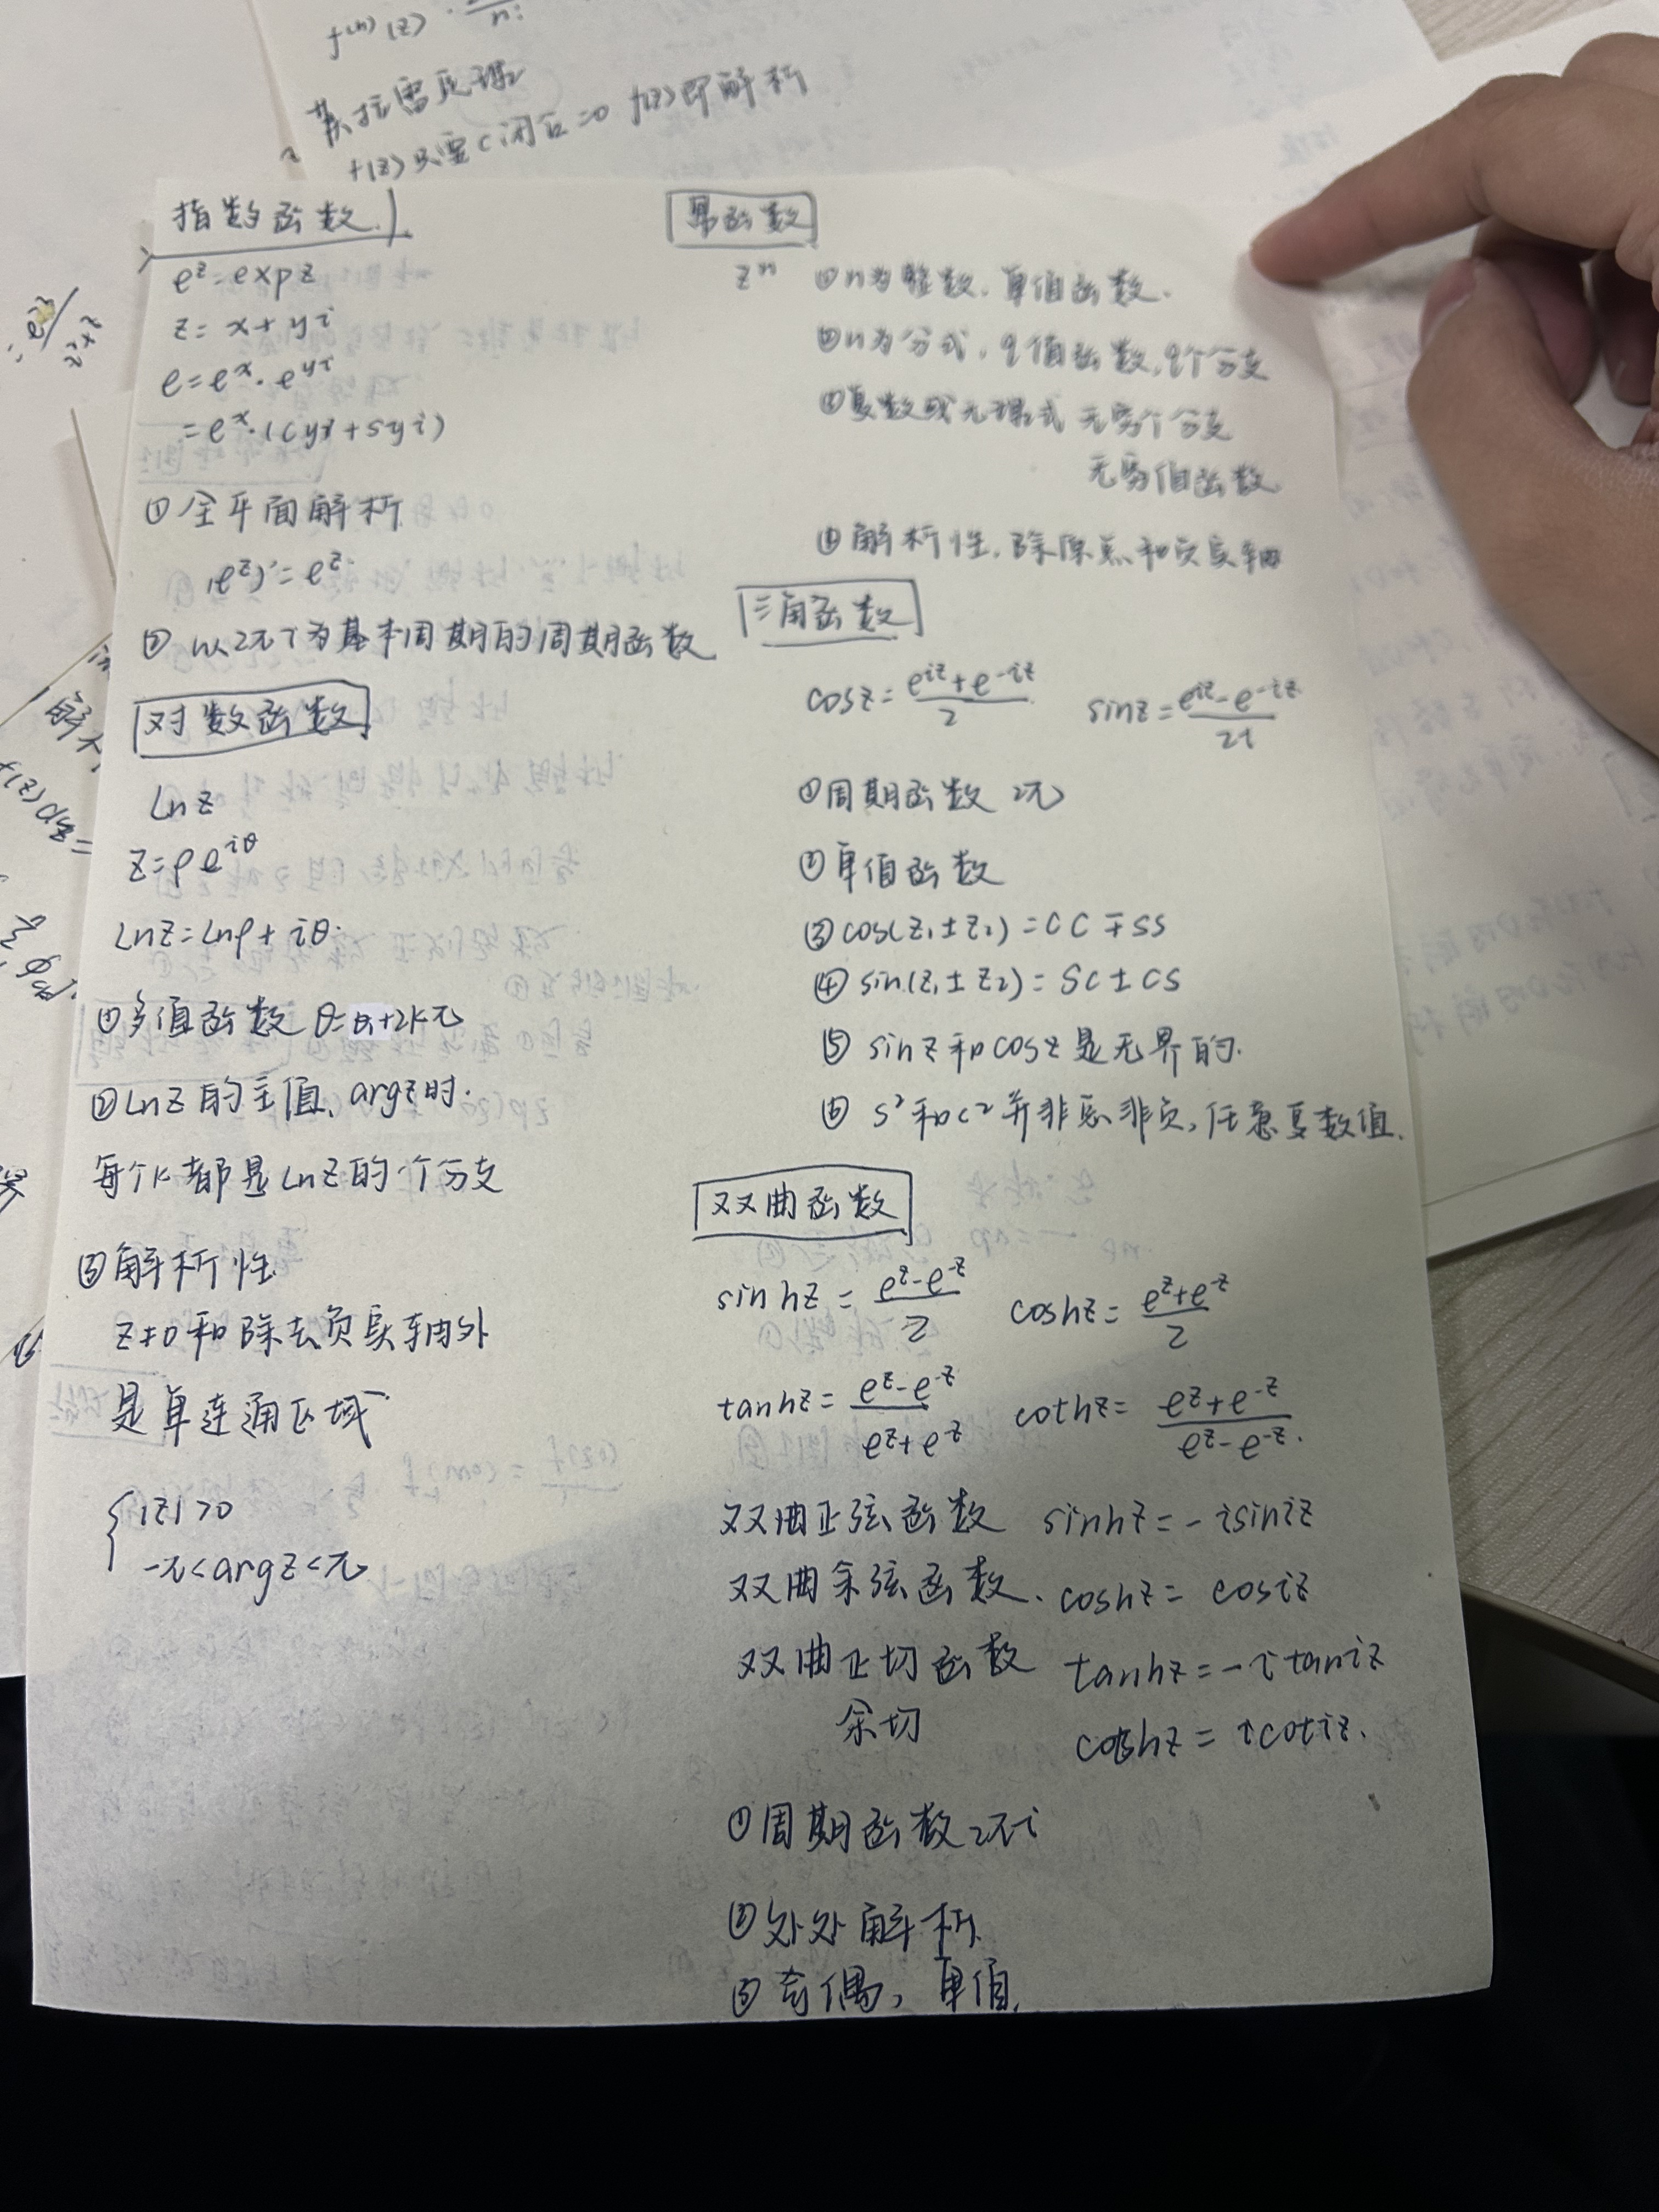 f⁽ⁿ⁾(z)
n!
莫拉雷氏理
f(z)只要C闭区=0 f(z)即解析
指数函数
e^z=exp z
z= x+yi
e=e^x·e^yi
=e^x·(cyi+syi)
①全平面解析
(e^z)'=e^z.
②以2πi为基本周期的周期函数
对数函数
Lnz
z=ρe^iθ
Lnz=lnρ+iθ.
①多值函数 θ=θ₁+2kπ
②Lnz的主值, argz时.
每个k都是Lnz的一个分支
③解析性
z≠0和除去负实轴外
是单连通区域
{|z|>0
-π<argz<π
幂函数
z^n ①n为整数, 单值函数.
②n为分式, q值函数, q个分支
③复数或无理式 无穷个分支
无穷值函数
④解析性, 除原点和负实轴
三角函数
cosz=(e^iz+e^-iz)/2 sinz=(e^iz-e^-iz)/2i
①周期函数 2π
②单值函数
③cos(z₁±z₂)=CC∓SS
④sin(z₁±z₂)=SC±CS
⑤ sinz和cosz是无界的.
⑥ s²和c²并非总非负, 任意复数值.
双曲函数
sinhz=(e^z-e^-z)/2 coshz=(e^z+e^-z)/2
tanhz=(e^z-e^-z)/(e^z+e^-z) cothz=(e^z+e^-z)/(e^z-e^-z).
双曲正弦函数 sinhz=-isiniz
双曲余弦函数. coshz= cosiz
双曲正切函数 tanhz=-itaniz
余切 cothz=icotiz.
①周期函数2πi
②处处解析.
③奇偶, 单值.